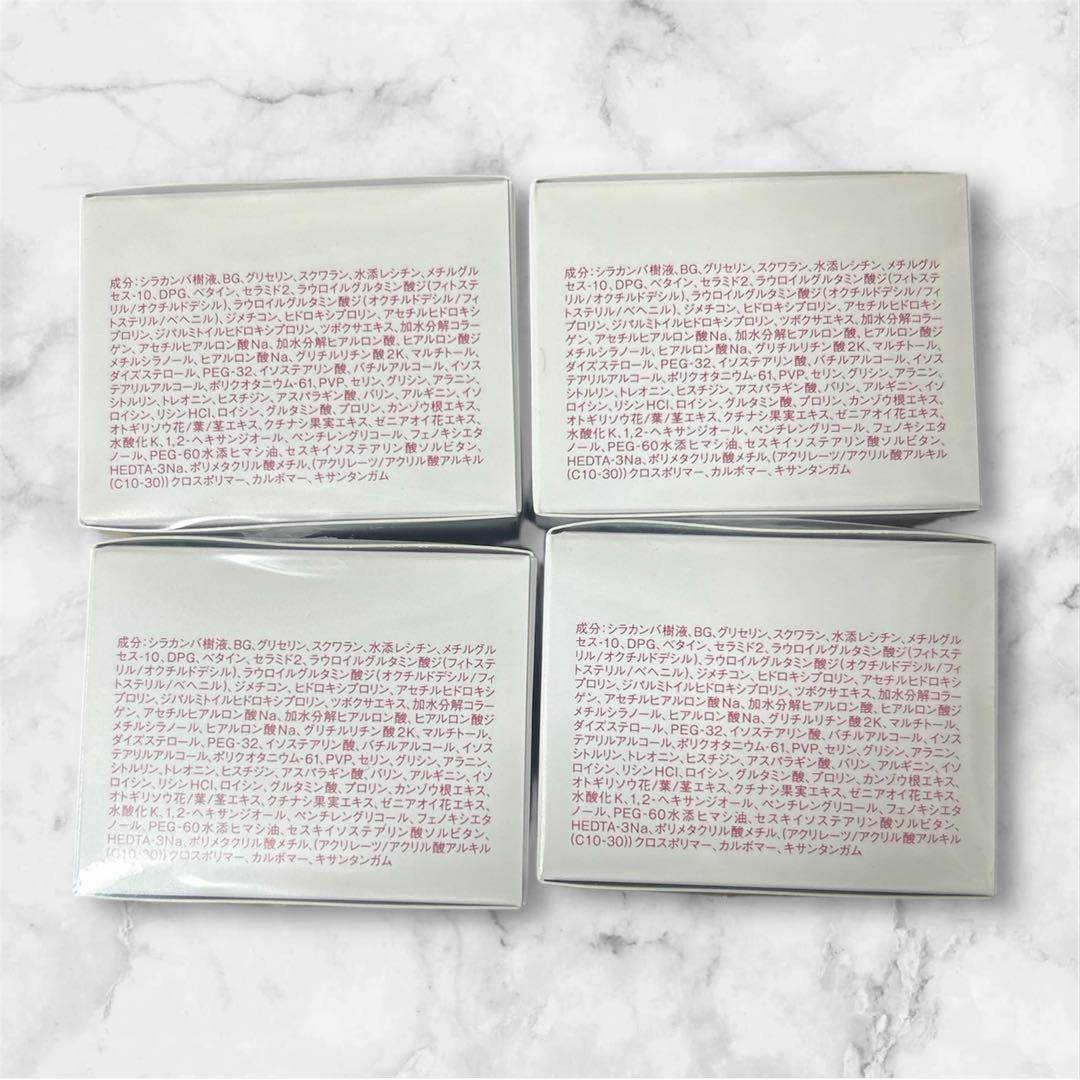 成分:シラカンバ樹液、BG、グリセリン、スクワラン、水添レシチン、メチルグル
セス-10、DPG、ベタイン、セラミド2、ラウロイルグルタミン酸ジ(フィトステ
リル/オクチルドデシル)、ラウロイルグルタミン酸ジ(オクチルドデシル/フィ
トステリル/ベヘニル)、ジメチコン、ヒドロキシプロリン、アセチルヒドロキシ
プロリン、ジパルミトイルヒドロキシプロリン、ツボクサエキス、加水分解コラー
ゲン、アセチルヒアルロン酸Na、加水分解ヒアルロン酸、ヒアルロン酸ジ
メチルシラノール、ヒアルロン酸Na、グリチルリチン酸2K、マルチトール、
ダイズステロール、PEG-32、イソステアリン酸、バチルアルコール、イソス
テアリルアルコール、ポリクオタニウム-61、PVP、セリン、グリシン、アラニン、
シトルリン、トレオニン、ヒスチジン、アスパラギン酸、バリン、アルギニン、イソ
ロイシン、リシンHCl、ロイシン、グルタミン酸、プロリン、カンゾウ根エキス、
オトギリソウ花/葉/茎エキス、クチナシ果実エキス、ゼニアオイ花エキス、
水酸化K、1,2-ヘキサンジオール、ペンチレングリコール、フェノキシエタ
ノール、PEG-60水添ヒマシ油、セスキイソステアリン酸ソルビタン、
HEDTA-3Na、ポリメタクリル酸メチル、(アクリレーツ/アクリル酸アルキル
(C10-30))クロスポリマー、カルボマー、キサンタンガム
成分:シラカンバ樹液、BG、グリセリン、スクワラン、水添レシチン、メチルグル
セス-10、DPG、ベタイン、セラミド2、ラウロイルグルタミン酸ジ(フィトステ
リル/オクチルドデシル)、ラウロイルグルタミン酸ジ(オクチルドデシル/フィ
トステリル/ベヘニル)、ジメチコン、ヒドロキシプロリン、アセチルヒドロキシ
プロリン、ジパルミトイルヒドロキシプロリン、ツボクサエキス、加水分解コラー
ゲン、アセチルヒアルロン酸Na、加水分解ヒアルロン酸、ヒアルロン酸ジ
メチルシラノール、ヒアルロン酸Na、グリチルリチン酸2K、マルチトール、
ダイズステロール、PEG-32、イソステアリン酸、バチルアルコール、イソス
テアリルアルコール、ポリクオタニウム-61、PVP、セリン、グリシン、アラニン、
シトルリン、トレオニン、ヒスチジン、アスパラギン酸、バリン、アルギニン、イソ
ロイシン、リシンHCl、ロイシン、グルタミン酸、プロリン、カンゾウ根エキス、
オトギリソウ花/葉/茎エキス、クチナシ果実エキス、ゼニアオイ花エキス、
水酸化K、1,2-ヘキサンジオール、ペンチレングリコール、フェノキシエタ
ノール、PEG-60水添ヒマシ油、セスキイソステアリン酸ソルビタン、
HEDTA-3Na、ポリメタクリル酸メチル、(アクリレーツ/アクリル酸アルキル
(C10-30))クロスポリマー、カルボマー、キサンタンガム
成分:シラカンバ樹液、BG、グリセリン、スクワラン、水添レシチン、メチルグル
セス-10、DPG、ベタイン、セラミド2、ラウロイルグルタミン酸ジ(フィトステ
リル/オクチルドデシル)、ラウロイルグルタミン酸ジ(オクチルドデシル/フィ
トステリル/ベヘニル)、ジメチコン、ヒドロキシプロリン、アセチルヒドロキシ
プロリン、ジパルミトイルヒドロキシプロリン、ツボクサエキス、加水分解コラー
ゲン、アセチルヒアルロン酸Na、加水分解ヒアルロン酸、ヒアルロン酸ジ
メチルシラノール、ヒアルロン酸Na、グリチルリチン酸2K、マルチトール、
ダイズステロール、PEG-32、イソステアリン酸、バチルアルコール、イソス
テアリルアルコール、ポリクオタニウム-61、PVP、セリン、グリシン、アラニン、
シトルリン、トレオニン、ヒスチジン、アスパラギン酸、バリン、アルギニン、イソ
ロイシン、リシンHCl、ロイシン、グルタミン酸、プロリン、カンゾウ根エキス、
オトギリソウ花/葉/茎エキス、クチナシ果実エキス、ゼニアオイ花エキス、
水酸化K、1,2-ヘキサンジオール、ペンチレングリコール、フェノキシエタ
ノール、PEG-60水添ヒマシ油、セスキイソステアリン酸ソルビタン、
HEDTA-3Na、ポリメタクリル酸メチル、(アクリレーツ/アクリル酸アルキル
(C10-30))クロスポリマー、カルボマー、キサンタンガム
成分:シラカンバ樹液、BG、グリセリン、スクワラン、水添レシチン、メチルグル
セス-10、DPG、ベタイン、セラミド2、ラウロイルグルタミン酸ジ(フィトステ
リル/オクチルドデシル)、ラウロイルグルタミン酸ジ(オクチルドデシル/フィ
トステリル/ベヘニル)、ジメチコン、ヒドロキシプロリン、アセチルヒドロキシ
プロリン、ジパルミトイルヒドロキシプロリン、ツボクサエキス、加水分解コラー
ゲン、アセチルヒアルロン酸Na、加水分解ヒアルロン酸、ヒアルロン酸ジ
メチルシラノール、ヒアルロン酸Na、グリチルリチン酸2K、マルチトール、
ダイズステロール、PEG-32、イソステアリン酸、バチルアルコール、イソス
テアリルアルコール、ポリクオタニウム-61、PVP、セリン、グリシン、アラニン、
シトルリン、トレオニン、ヒスチジン、アスパラギン酸、バリン、アルギニン、イソ
ロイシン、リシンHCl、ロイシン、グルタミン酸、プロリン、カンゾウ根エキス、
オトギリソウ花/葉/茎エキス、クチナシ果実エキス、ゼニアオイ花エキス、
水酸化K、1,2-ヘキサンジオール、ペンチレングリコール、フェノキシエタ
ノール、PEG-60水添ヒマシ油、セスキイソステアリン酸ソルビタン、
HEDTA-3Na、ポリメタクリル酸メチル、(アクリレーツ/アクリル酸アルキル
(C10-30))クロスポリマー、カルボマー、キサンタンガム